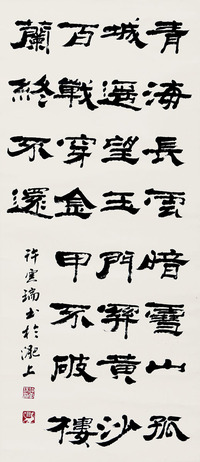 青海長雲暗雪山孤
城遥望玉門關黃沙
百戰穿金甲不破樓
蘭終不還
許雲瑞书於淝上